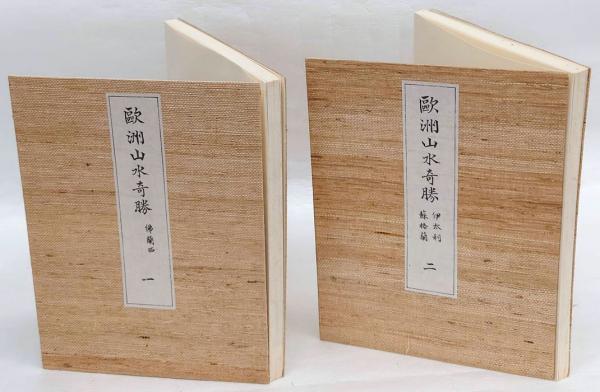 歐洲山水奇勝
佛蘭西
一
歐洲山水奇勝
伊太利
蘇格蘭
二